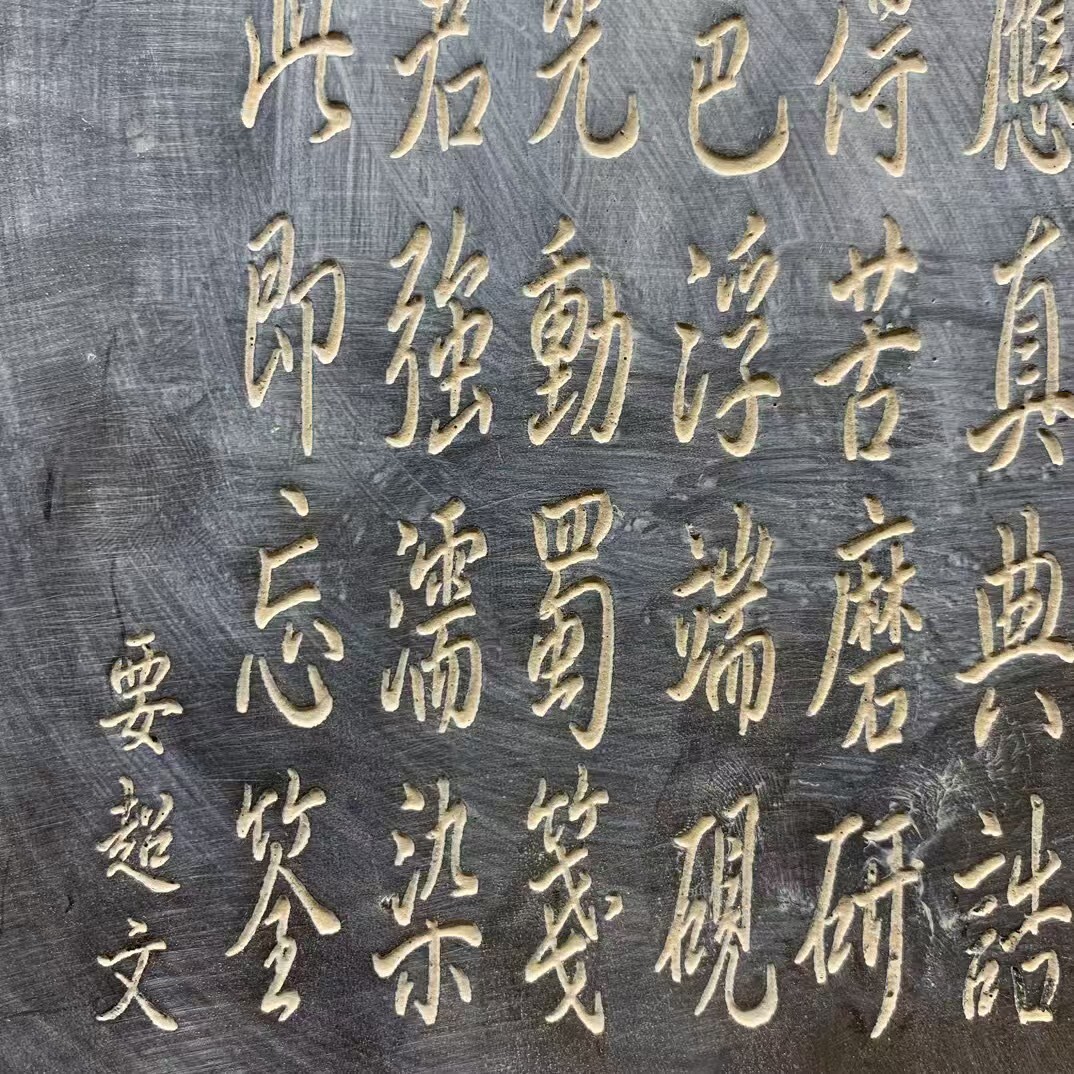 應真典誥
得苦磨研
巴浮端硯
光動蜀箋
若強濡染
此即忘筌
要超文